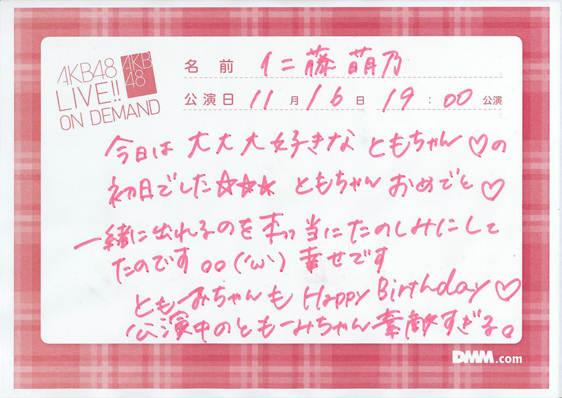 AKB48
LIVE!!
ON DEMAND
AKB
48
名前 仁藤萌乃
公演日 11月16日 19:00公演
今日は大大大好きなともちゃん♡の
初日でした☆☆☆ ともちゃんおめでと♡
一緒に出れるのを本当にたのしみにして
たのです oo('ω') 幸せです
ともーみちゃんもHappy Birthday♡
公演中のともーみちゃん素敵すぎる。
DMM.com